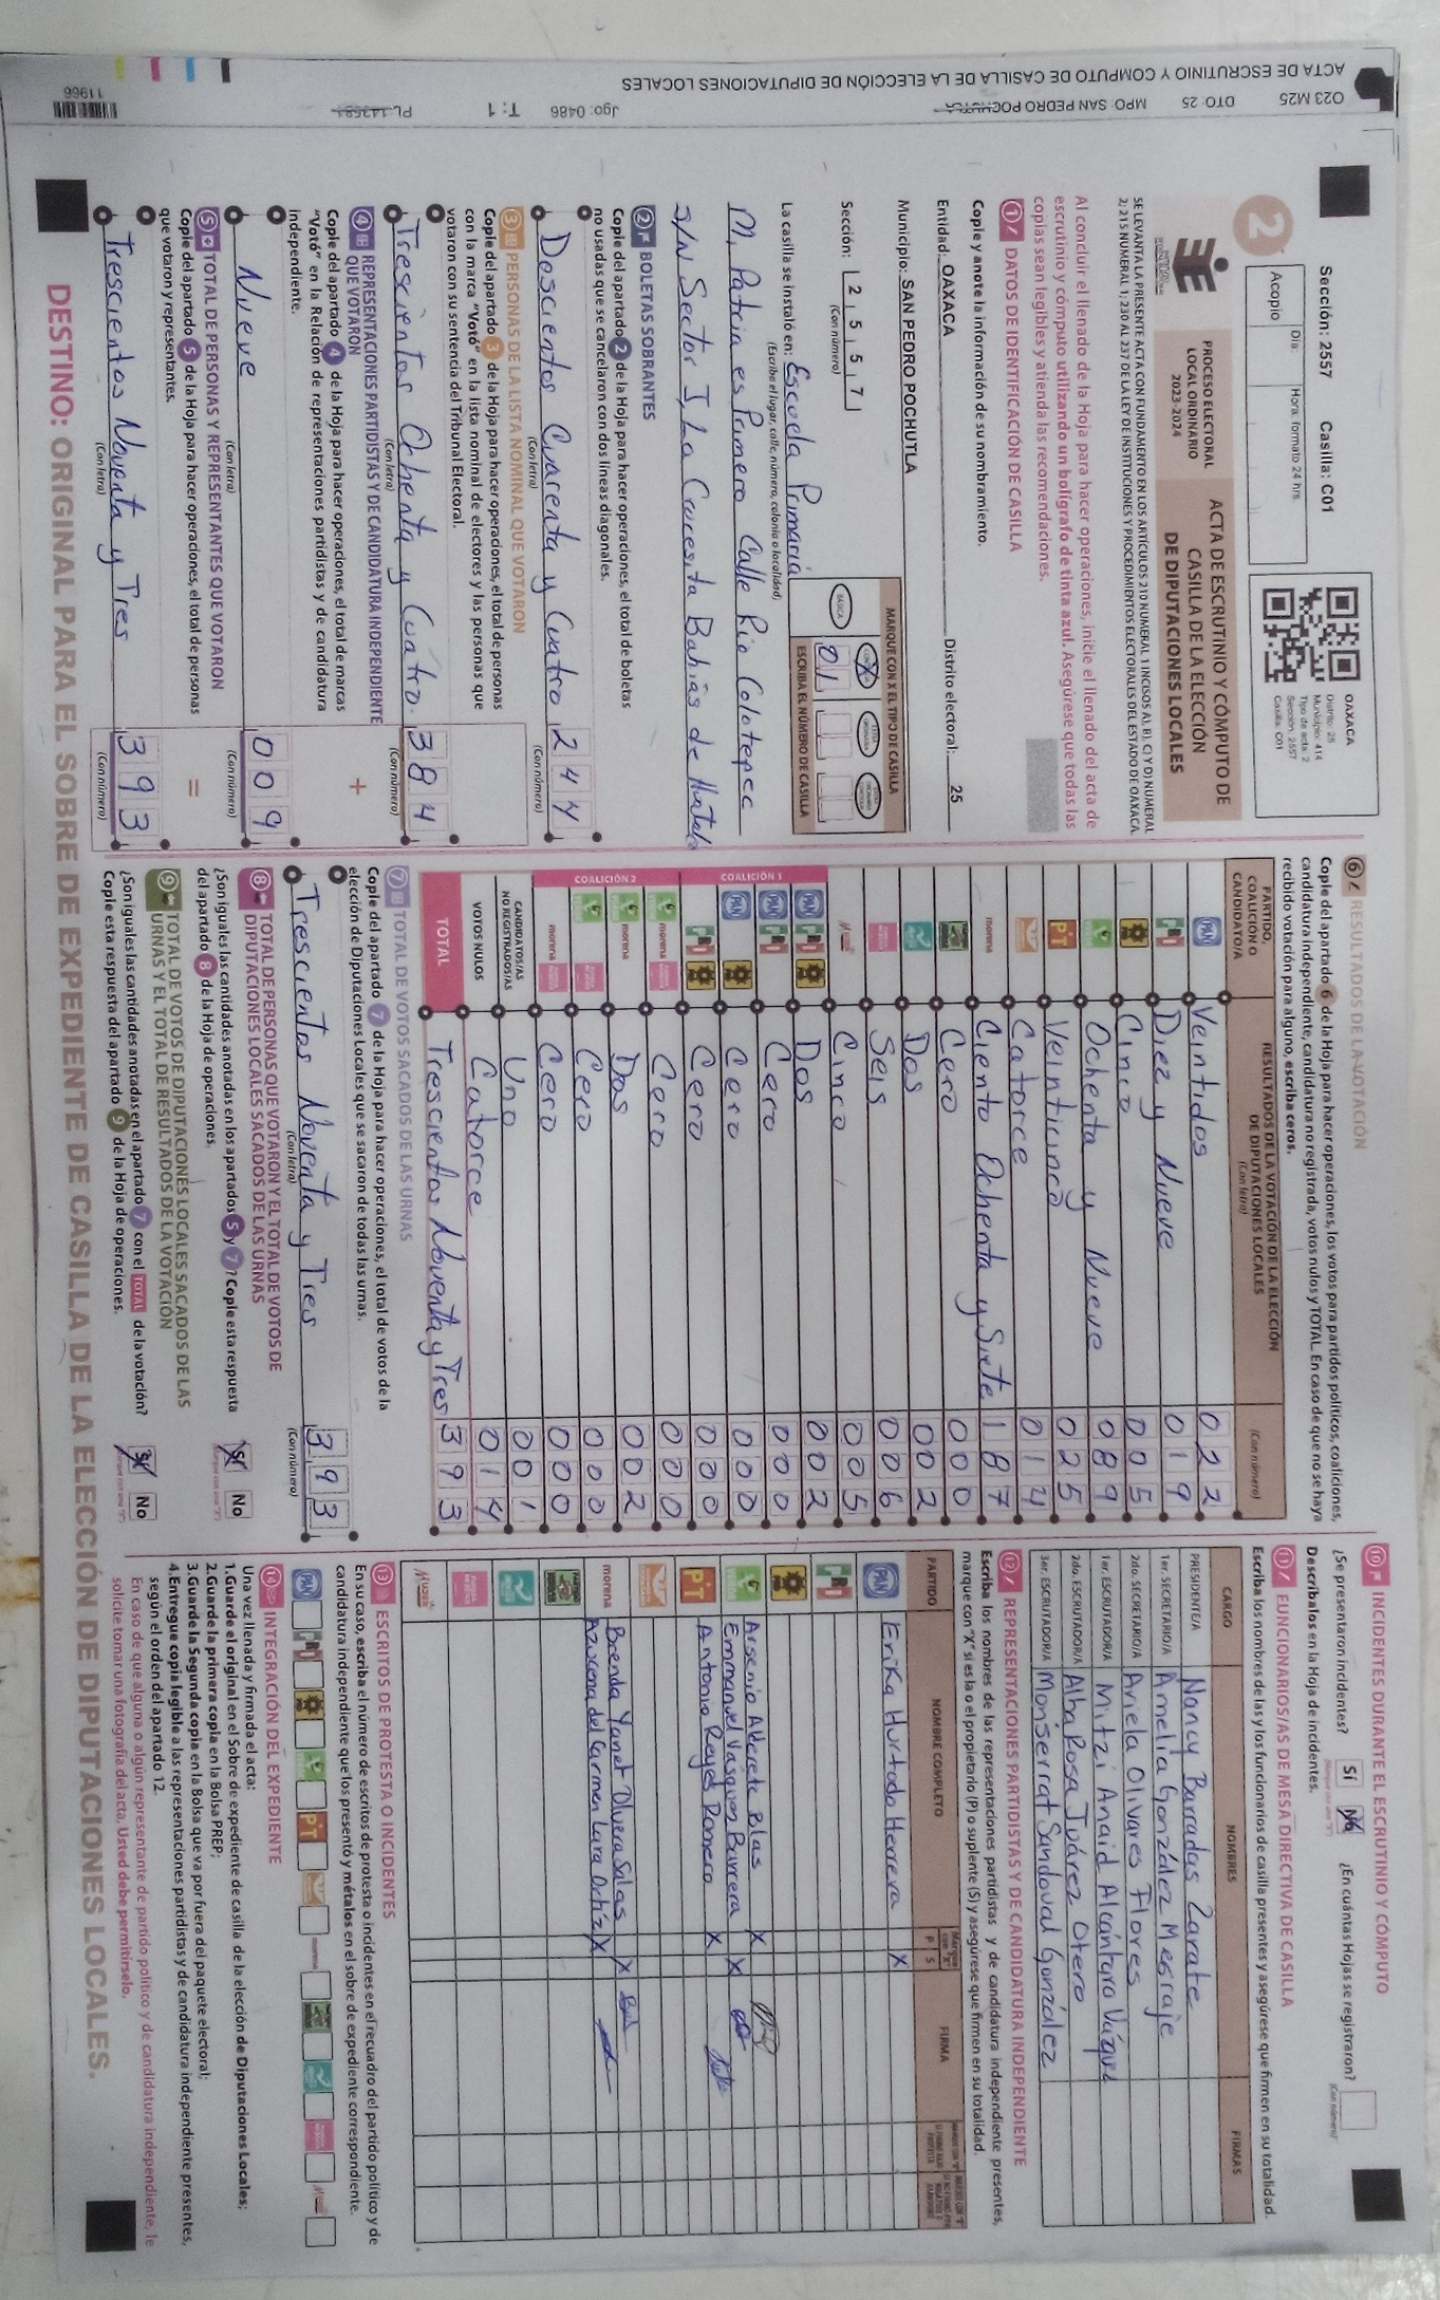 O23 M25 DTO: 25 MPO: SAN PEDRO POCHUTLA
ACTA DE ESCRUTINIO Y CÓMPUTO DE CASILLA DE LA ELECCIÓN DE DIPUTACIONES LOCALES
Jgo: 0486 T: 1
11966
Sección: 2557 Casilla: C01
2
Acopio
Día:
Hora: formato 24 hrs.
OAXACA
Distrito: 25
Municipio: 414
Tipo de acta: 2
Sección: 2557
Casilla: C01
PROCESO ELECTORAL
LOCAL ORDINARIO
2023-2024
ACTA DE ESCRUTINIO Y CÓMPUTO DE
CASILLA DE LA ELECCIÓN
DE DIPUTACIONES LOCALES
SE LEVANTA LA PRESENTE ACTA CON FUNDAMENTO EN LOS ARTÍCULOS 210 NUMERAL 1 INCISOS A), B), C) Y D) NUMERAL
2; 215 NUMERAL 1; 230 AL 237 DE LA LEY DE INSTITUCIONES Y PROCEDIMIENTOS ELECTORALES DEL ESTADO DE OAXACA.
Al concluir el llenado de la Hoja para hacer operaciones, inicie el llenado del acta de
escrutinio y cómputo utilizando un bolígrafo de tinta azul. Asegúrese que todas las
copias sean legibles y atienda las recomendaciones.
1 DATOS DE IDENTIFICACIÓN DE CASILLA
Copie y anote la información de su nombramiento.
Entidad: OAXACA Distrito electoral: 25
Municipio: SAN PEDRO POCHUTLA
Sección: 2 5 5 7
(Con número)
MARQUE CON X EL TIPO DE CASILLA
BÁSICA
ESCRIBA EL NÚMERO DE CASILLA
0 1
La casilla se instaló en: Escuela Primaria
(Escriba el lugar, calle, número, colonia o localidad)
Mi Patria es Primero Calle Rio Colotepec
s/n Sector I, La Crucesita Bahias de Huatulco
2 BOLETAS SOBRANTES
Copie del apartado 2 de la Hoja para hacer operaciones, el total de boletas
no usadas que se cancelaron con dos líneas diagonales.
Doscientos Cuarenta y Cuatro 2 4 4
(Con letra) (Con número)
3 PERSONAS DE LA LISTA NOMINAL QUE VOTARON
Copie del apartado 3 de la Hoja para hacer operaciones, el total de personas
con la marca "Votó" en la lista nominal de electores y las personas que
votaron con su sentencia del Tribunal Electoral.
Trescientos Ochenta y Cuatro. 3 8 4
(Con letra) (Con número)
4 REPRESENTACIONES PARTIDISTAS Y DE CANDIDATURA INDEPENDIENTE
QUE VOTARON
Copie del apartado 4 de la Hoja para hacer operaciones, el total de marcas
"Votó" en la Relación de representaciones partidistas y de candidatura
independiente.
+
Nueve 0 0 9
(Con letra) (Con número)
5 TOTAL DE PERSONAS Y REPRESENTANTES QUE VOTARON
Copie del apartado 5 de la Hoja para hacer operaciones, el total de personas
que votaron y representantes.
=
Trescientos Noventa y Tres 3 9 3
(Con letra) (Con número)
6 RESULTADOS DE LA VOTACIÓN
Copie del apartado 6 de la Hoja para hacer operaciones, los votos para partidos políticos, coaliciones,
candidatura independiente, candidatura no registrada, votos nulos y TOTAL. En caso de que no se haya
recibido votación para alguno, escriba ceros.
PARTIDO,
COALICIÓN O
CANDIDATO/A
RESULTADOS DE LA VOTACIÓN DE LA ELECCIÓN
DE DIPUTACIONES LOCALES
(Con letra) (Con número)
PAN Veintidos 0 2 2
PRI Diez y Nueve 0 1 9
Cinco 0 0 5
Ochenta y Nueve 0 8 9
PT Veinticinco 0 2 5
Catorce 0 1 4
morena Ciento Ochenta y Siete 1 8 7
Cero 0 0 0
Dos 0 0 2
Seis 0 0 6
Cinco 0 0 5
COALICIÓN 1
PAN PRI Dos 0 0 2
PAN PRI Cero 0 0 0
PAN Cero 0 0 0
PRI Cero 0 0 0
COALICIÓN 2
morena Cero 0 0 0
morena Dos 0 0 2
Cero 0 0 0
morena Cero 0 0 0
CANDIDATOS/AS
NO REGISTRADOS/AS Uno 0 0 1
VOTOS NULOS Catorce 0 1 4
TOTAL Trescientos Noventa y Tres 3 9 3
7 TOTAL DE VOTOS SACADOS DE LAS URNAS
Copie del apartado 7 de la Hoja para hacer operaciones, el total de votos de la
elección de Diputaciones Locales que se sacaron de todas las urnas.
Trescientos Noventa y Tres 3 9 3
(Con letra) (Con número)
8 TOTAL DE PERSONAS QUE VOTARON Y EL TOTAL DE VOTOS DE
DIPUTACIONES LOCALES SACADOS DE LAS URNAS
¿Son iguales las cantidades anotadas en los apartados 5 y 7? Copie esta respuesta
del apartado 8 de la Hoja de operaciones.
Sí No
9 TOTAL DE VOTOS DE DIPUTACIONES LOCALES SACADOS DE LAS
URNAS Y EL TOTAL DE RESULTADOS DE LA VOTACIÓN
¿Son iguales las cantidades anotadas en el apartado 7 con el TOTAL de la votación?
Copie esta respuesta del apartado 9 de la Hoja de operaciones.
Sí No
10 INCIDENTES DURANTE EL ESCRUTINIO Y CÓMPUTO
¿Se presentaron incidentes? Sí No ¿En cuántas Hojas se registraron?
(Con número)
Descríbalos en la Hoja de incidentes.
11 FUNCIONARIOS/AS DE MESA DIRECTIVA DE CASILLA
Escriba los nombres de las y los funcionarios de casilla presentes y asegúrese que firmen en su totalidad.
CARGO NOMBRES FIRMAS
PRESIDENTE/A Nancy Barradas Zarate
1er. SECRETARIO/A Amelia González Mesraje
2do. SECRETARIO/A Ariela Olivares Flores
1er. ESCRUTADOR/A Mitzi Anaid Alcántara Vázquez
2do. ESCRUTADOR/A Alba Rosa Juárez Otero
3er. ESCRUTADOR/A Monserrat Sandoval González
12 REPRESENTACIONES PARTIDISTAS Y DE CANDIDATURA INDEPENDIENTE
Escriba los nombres de las representaciones partidistas y de candidatura independiente presentes,
marque con "X" si es la o el propietario (P) o suplente (S) y asegúrese que firmen en su totalidad.
PARTIDO NOMBRE COMPLETO P S FIRMA
PAN Erika Hurtado Herrera X
PRI
Arsenio Alderete Blas X
Emmanuel Vasquez Barrera X
PT Antonio Reyes Romero X
morena Brenda Yanet Olvera Salas X
Azucena del Carmen Lara Ortíz X
13 ESCRITOS DE PROTESTA O INCIDENTES
En su caso, escriba el número de escritos de protesta o incidentes en el recuadro del partido político y de
candidatura independiente que los presentó y métalos en el sobre de expediente correspondiente.
PAN PRI PT morena
14 INTEGRACIÓN DEL EXPEDIENTE
Una vez llenada y firmada el acta:
1.Guarde el original en el Sobre de expediente de casilla de la elección de Diputaciones Locales;
2.Guarde la primera copia en la Bolsa PREP;
3.Guarde la Segunda copia en la Bolsa que va por fuera del paquete electoral;
4.Entregue copia legible a las representaciones partidistas y de candidatura independiente presentes,
según el orden del apartado 12.
En caso de que alguna o algún representante de partido político y de candidatura independiente, le
solicite tomar una fotografía del acta, Usted debe permitírselo.
DESTINO: ORIGINAL PARA EL SOBRE DE EXPEDIENTE DE CASILLA DE LA ELECCIÓN DE DIPUTACIONES LOCALES.